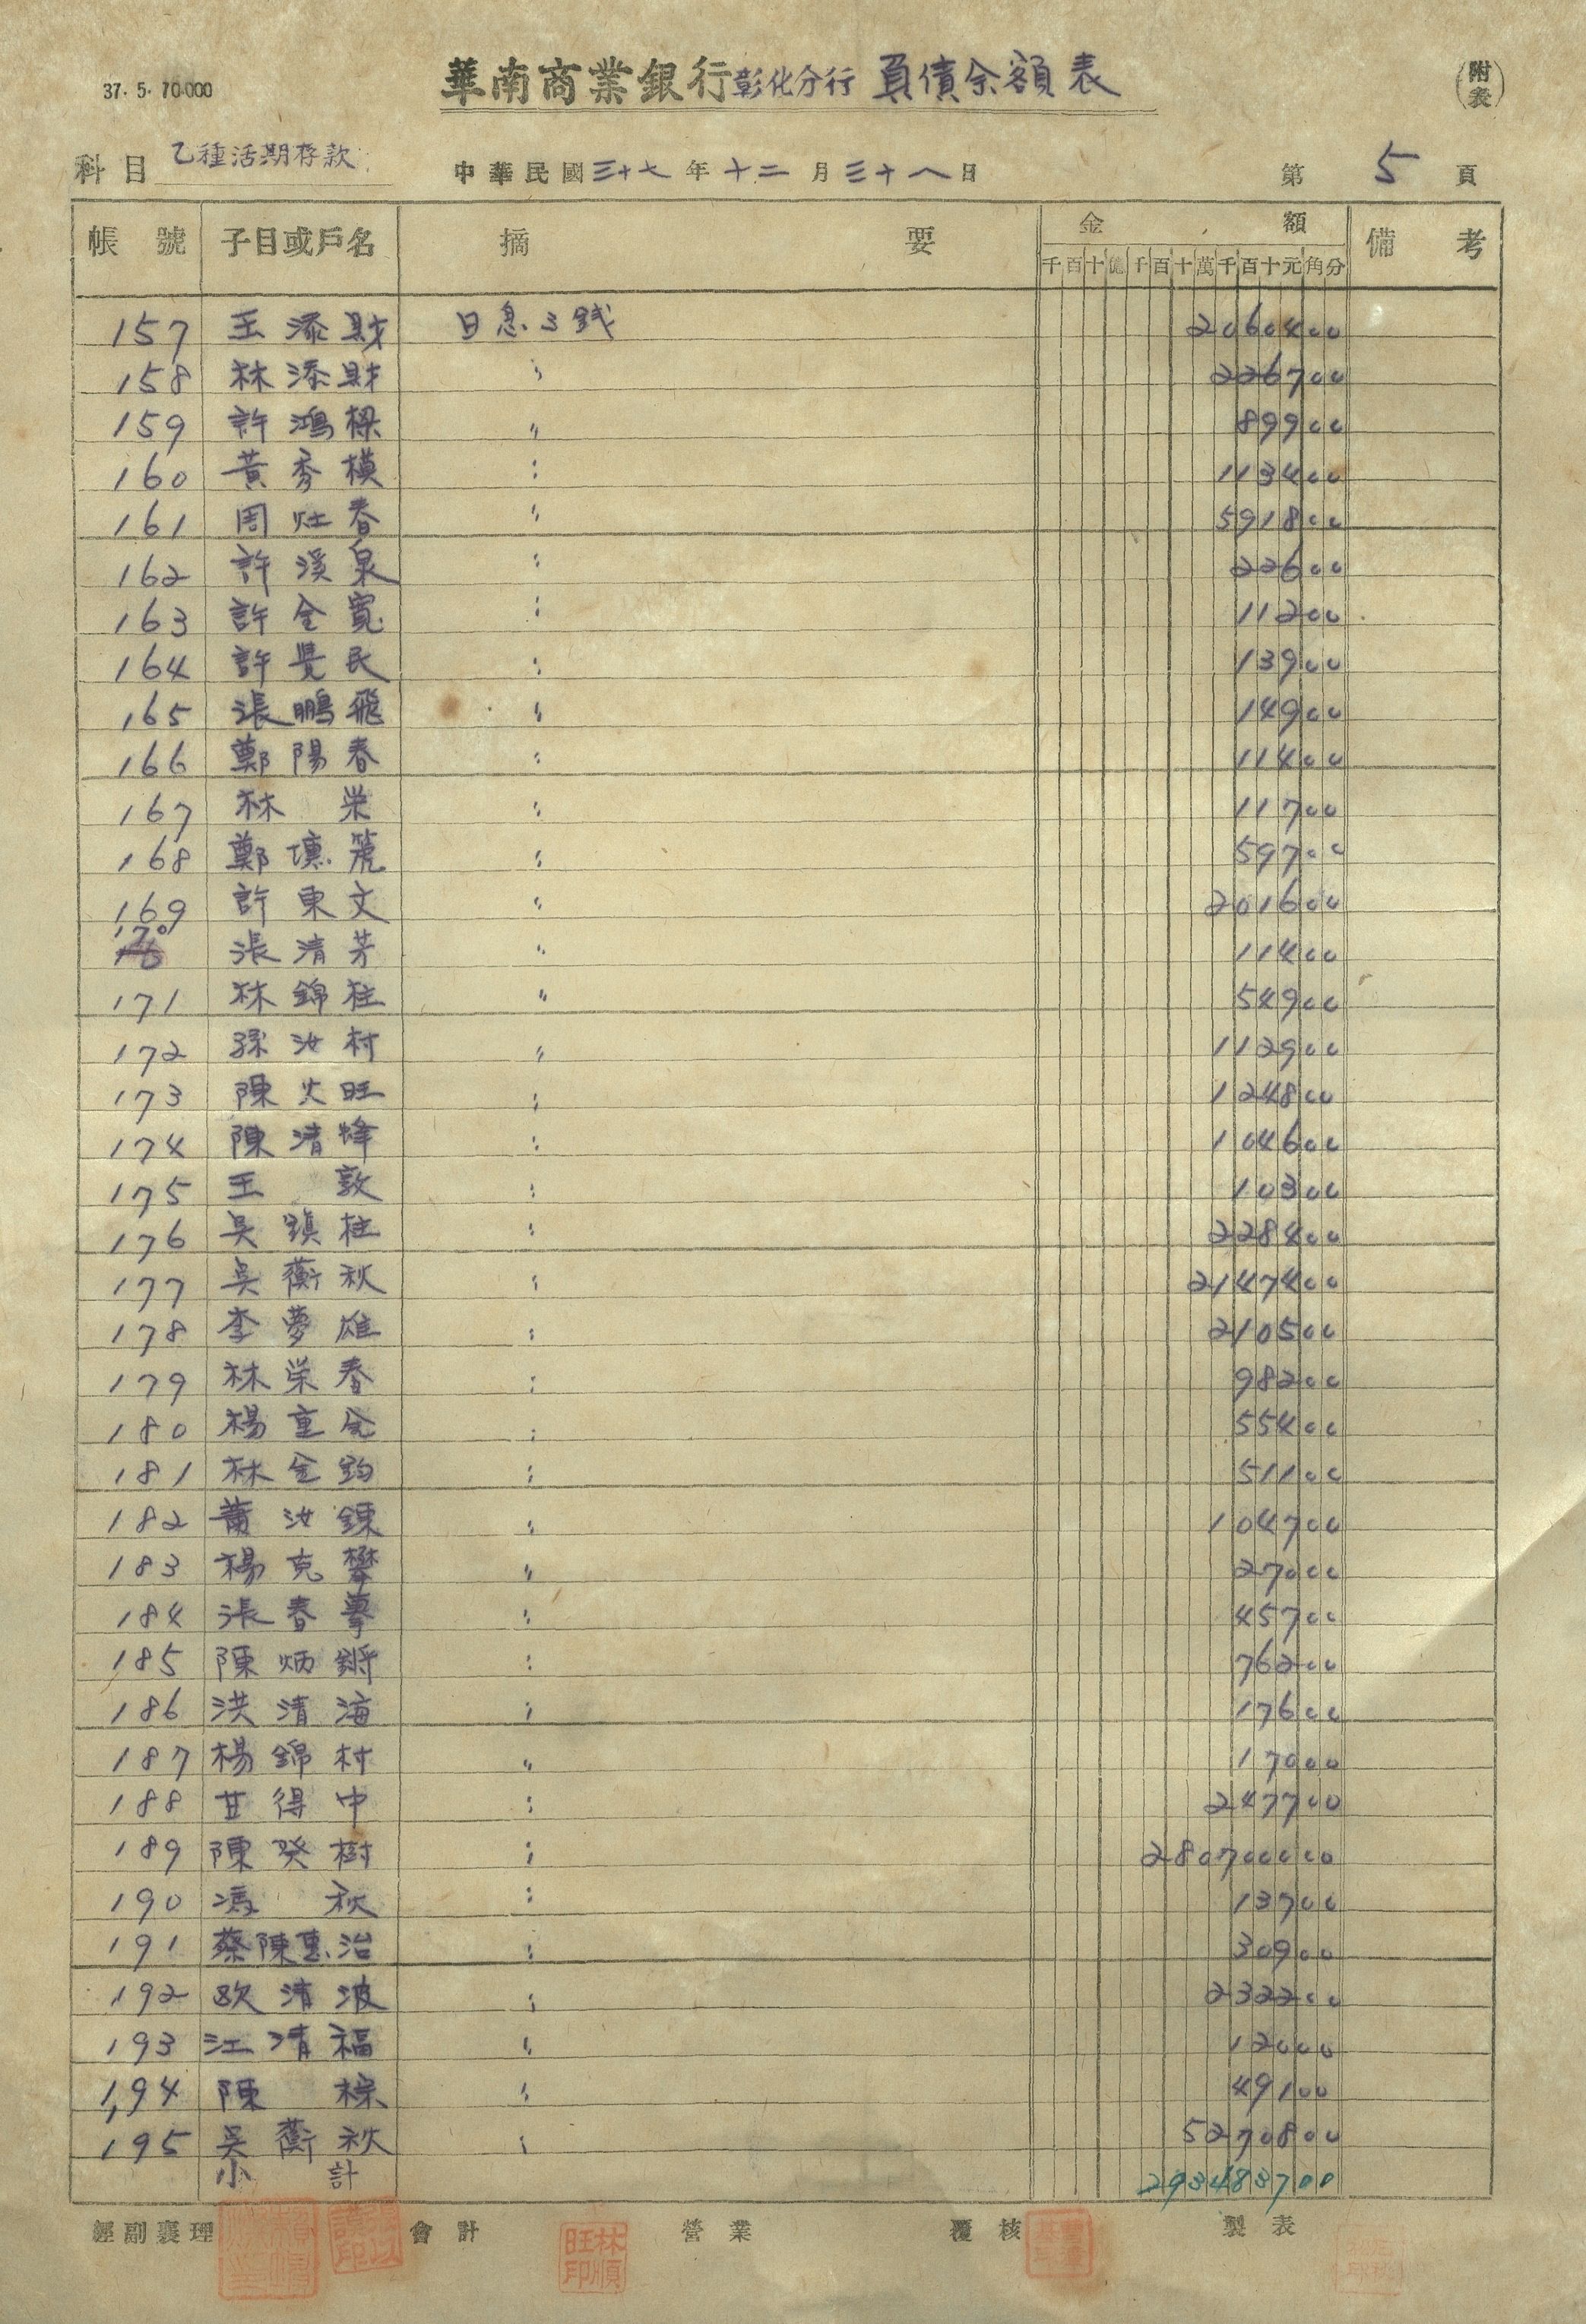 37. 5. 70.000
華南商業銀行彰化分行 負債余額表
(附表)
科目 乙種活期存款
中華民國三十七年十二月三十八日
第 5 頁
帳號 子目或戶名 摘要 金額 備考
千百十億千百十萬千百十元角分
157 王添財 日息3錢 2060400
158 林添財 〃 226700
159 許鴻樑 〃 89900
160 黃秀模 〃 113400
161 周灶春 〃 591800
162 許溪泉 〃 22600
163 許全寬 〃 11200
164 許覺民 〃 13900
165 張鵬飛 〃 14900
166 鄭陽春 〃 11400
167 林栄 〃 11700
168 鄭壎箎 〃 59700
169 許東文 〃 201600
170 張清芳 〃 11400
171 林錦柱 〃 54900
172 孫汝村 〃 112900
173 陳火旺 〃 124800
174 陳清烽 〃 104600
175 王敦 〃 10300
176 吳鎮柱 〃 228400
177 吳蘅秋 〃 2147400
178 李夢雄 〃 210500
179 林栄春 〃 98200
180 楊重 〃 55400
181 林金鈞 〃 51100
182 蕭汝鍊 〃 104700
183 楊克攀 〃 27000
184 張春 〃 45700
185 陳炳鏘 〃 76200
186 洪清海 〃 17600
187 楊錦村 〃 17000
188 甘得中 〃 247700
189 陳癸樹 〃 280700000
190 馮秋 〃 13700
191 蔡陳惠治 〃 30900
192 欧清波 〃 232200
193 江清福 〃 12000
194 陳棕 〃 49100
195 吳蘅秋 〃 5270800
小計 293483700
經副襄理 會計 營業 覆核 製表
林順旺印